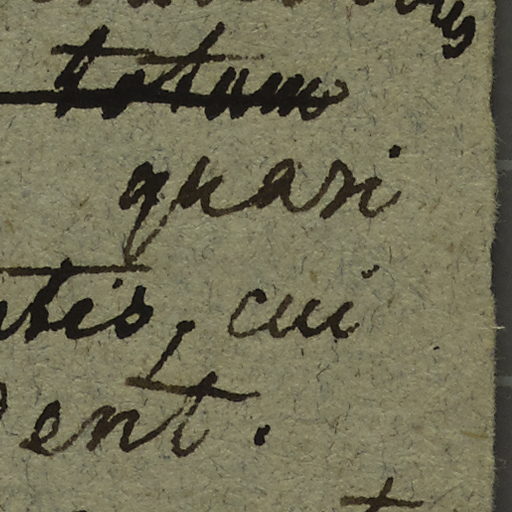 totam
quasi
tis, cui
ent.